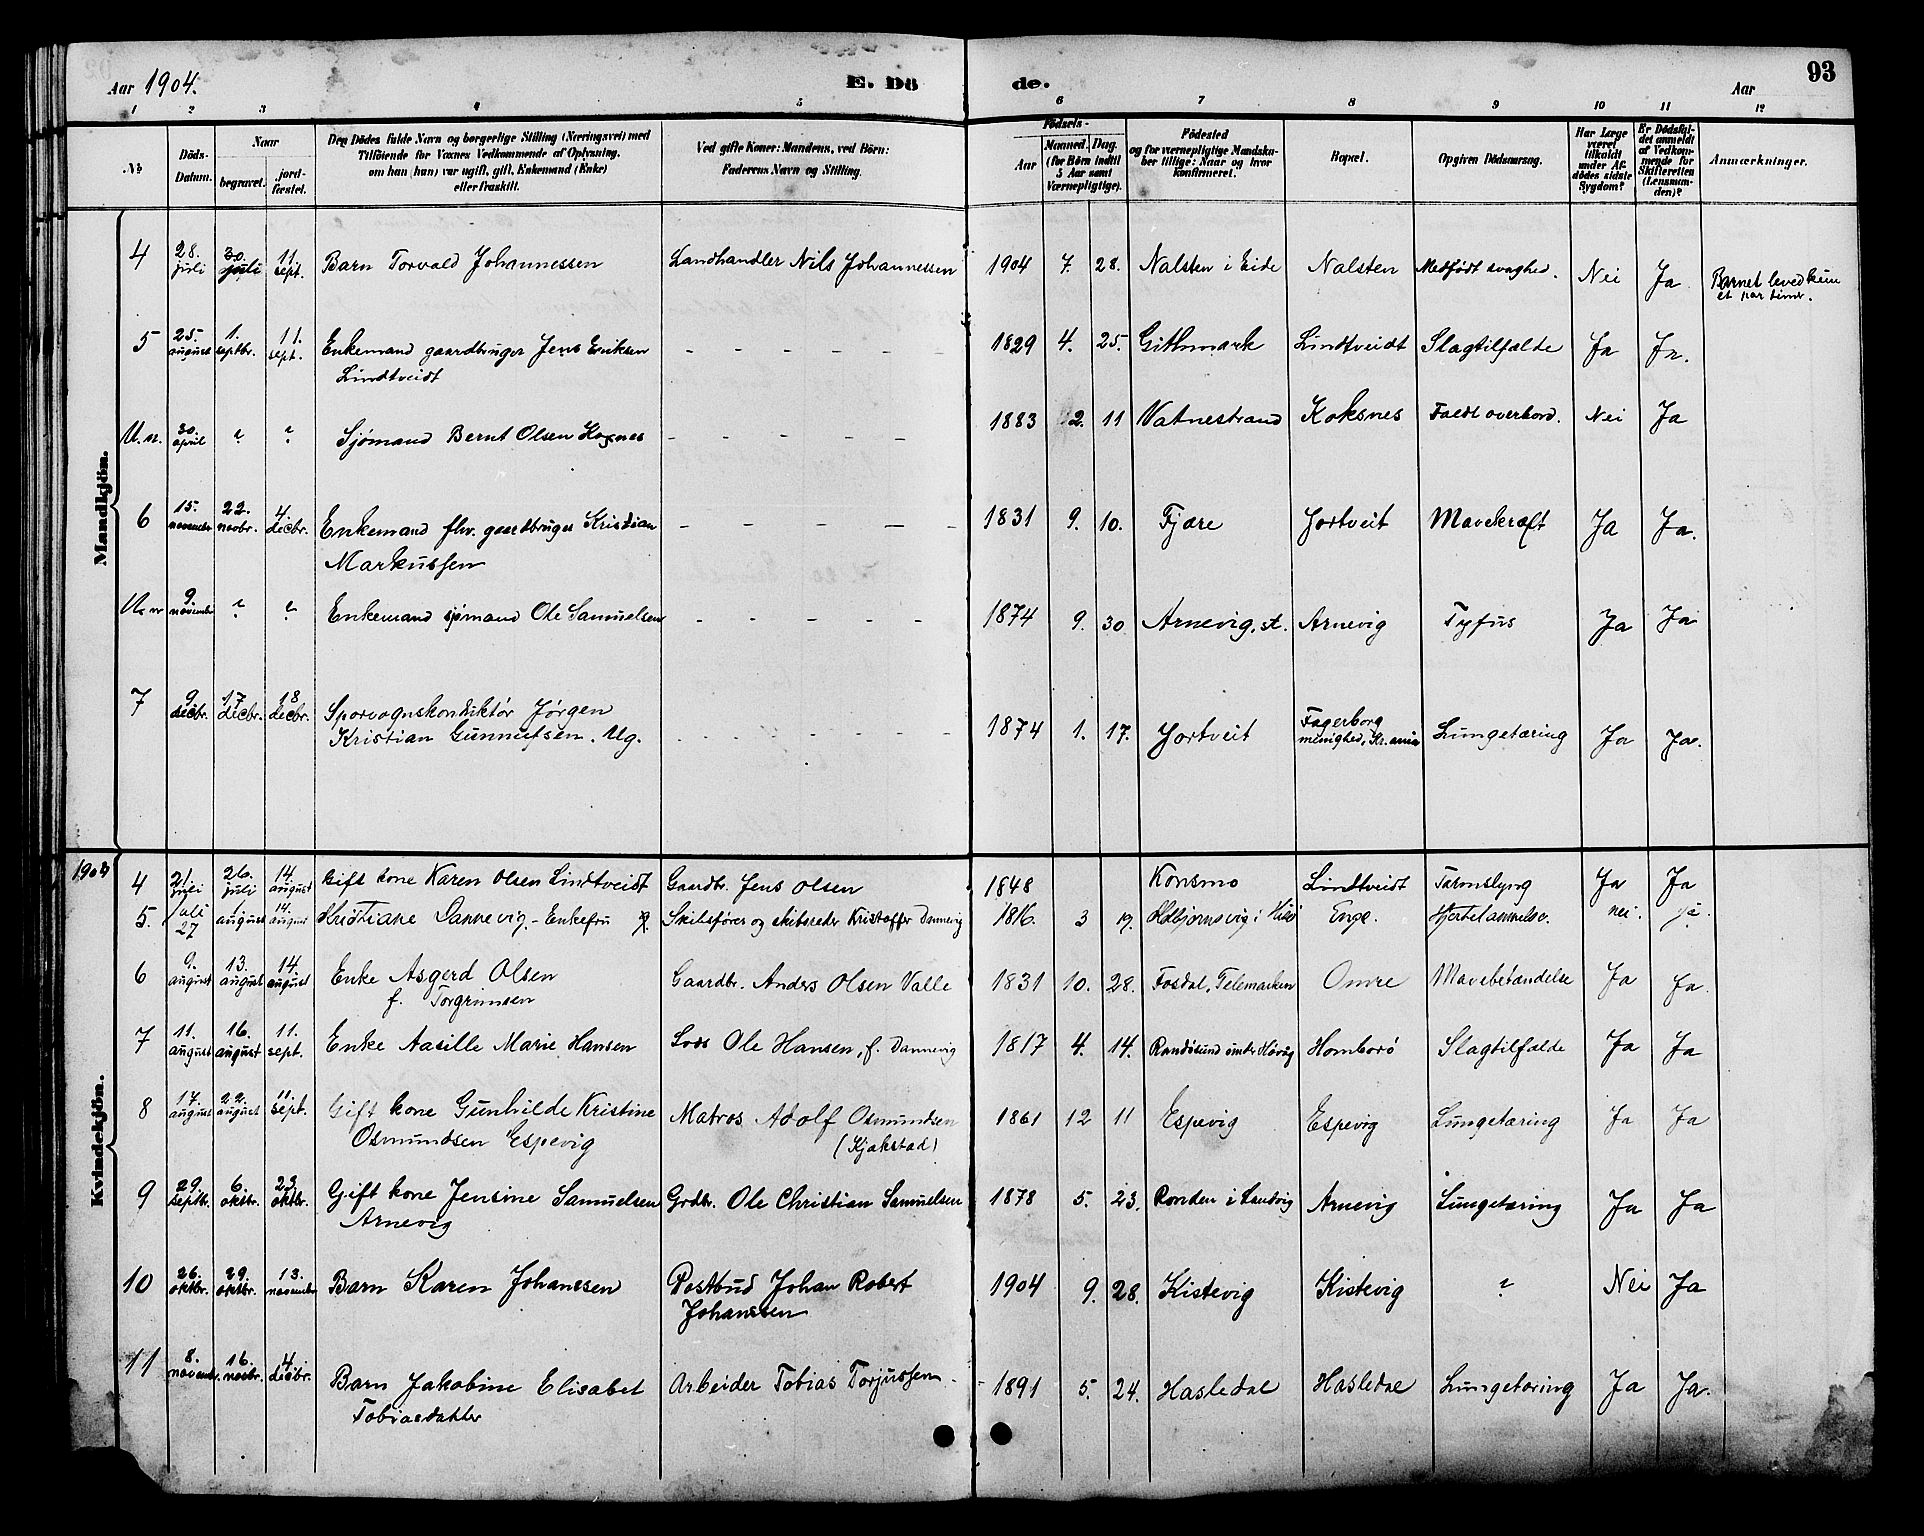 Aar 1904. E. Dö de. Aar 93
1 2 3 4 5 6 7 8 9 10 11 12
No Döds-Datum. Naar begravet. jord-fæstet. Den Dödes fulde Navn og borgerlige Stilling (Næringsvei) med Tilföiende for Voxnes Vedkommende af Oplysning, om han (hun) var ugift, gift, Enkemand (Enke) eller fraskilt. Ved gifte Koner: Mandens, ved Börn: Faderens Navn og Stilling. Fødsels- Aar Maaned. Dag. (for Børn indtil 5 Aar samt Værnepligtige). Födested og for værnepligtige Mandskaber tillige: Naar og hvor konfirmeret. Bopæl. Opgiven Dödsaarsag. Har Læge været tilkaldt under Afdødes sidste Sygdom? Er Dødsfaldet anmeldt af Vedkommende for Skifteretten (Lensmanden)? Anmærkninger.
Mandkjön.
4 28. juli 30. juli 11. sept. Barn Torvald Johannessen Landhandler Nils Johannessen 1904 7. 28. Nalsten i Eide Nalsten Medfödt svaghed. Nei Ja Barnet leved kun
et par timer.
5 25. august 1. septbr. 11. sept. Enkemand gaardbruger Jens Eriksen - - - - - - 1829 4. 25. Githmark Lindtveidt Slagtilfælde Ja Ja.
Lindtveidt
U.n. 30. april ? ? Sjømand Bernt Olsen Koxnes - - - - - 1883 2. 11 Vatnestrand Koksnes Faldt overbord. Nei Ja
6 15. november 22. novbr. 4. decbr. Enkemand fhv. gaardbruger Kristian - - - - - 1831 9. 10. Fjære Hortveit Mavekræft Ja Ja.
Markussen
U. n 9 november ? ? Enkemand sjømand Ole Samuelsen - - - - - 1874 9. 30 Arnevig, st. Arnevig Tyfus Ja Ja
7 9 decbr. 17 decbr. 18 decbr. Sporvognskonduktör Jörgen
Kristian Gunnufsen. Ug. - - - - - - - 1874 1. 17. Hortveit Fagerborg
menighed, Kr.ania Lungetæring Ja Ja.
1904
Kvindekjön.
4 21. juli 26. juli 14 august Gift kone Karen Olsen Lindtveidt Gaardbr. Jens Olsen 1848 Konsmo Lindtveidt Tarmslyng Ja Ja
5. Juli 27 1 august 14. august Kristiane Dannevig - Enkefru Skibsfører og skibsreder Kristoffer Dannevig 1816. 3 19. i Hisö Enge. Hjertelammelse. nei. ja.
6 9. august 13. august 14 august Enke Asgerd Olsen Gaardbr. Anders Olsen Valle 1831 10. 28. Fosdal, Telemarken Omre Mavebetændelse Ja Ja
f. Torgrimsen
7 11. august 16. august 11. sept. Enke Aasille Marie Hansen Lods Ole Hansen, f. Dannevig 1817 4. 14. Randösund under Hövåg Homborö Slagtilfælde Ja Ja
8 17. august 22. august 11. sept. Gift kone Gunhilde Kristine Matros Adolf Osmundsen 1861 12 11 Espevig Espevig Lungetæring Ja Ja
Osmundsen Espevig (Kjakstad)
9 29. septbr. 6. oktbr. 23. oktbr. Gift kone Jensine Samuelsen Grdbr. Ole Christian Samuelsen 1878 5. 23. Ronden i Landvig Arnevig Lungetæring Ja Ja
Arnevig
10 26. oktbr. 29. oktbr. 13. november Barn Karen Johanssen Postbud Johan Robert 1904 9. 28. Kistevig Kistevig ? Nei Ja
Johanssen
11 8. november. 16. novbr. 4 decbr. Barn Jakobine Elisabet Arbeider Tobias Torjussen 1891 5. 24. Hasledal Hasledal Lungetæring Ja Ja.
Tobiasdatter